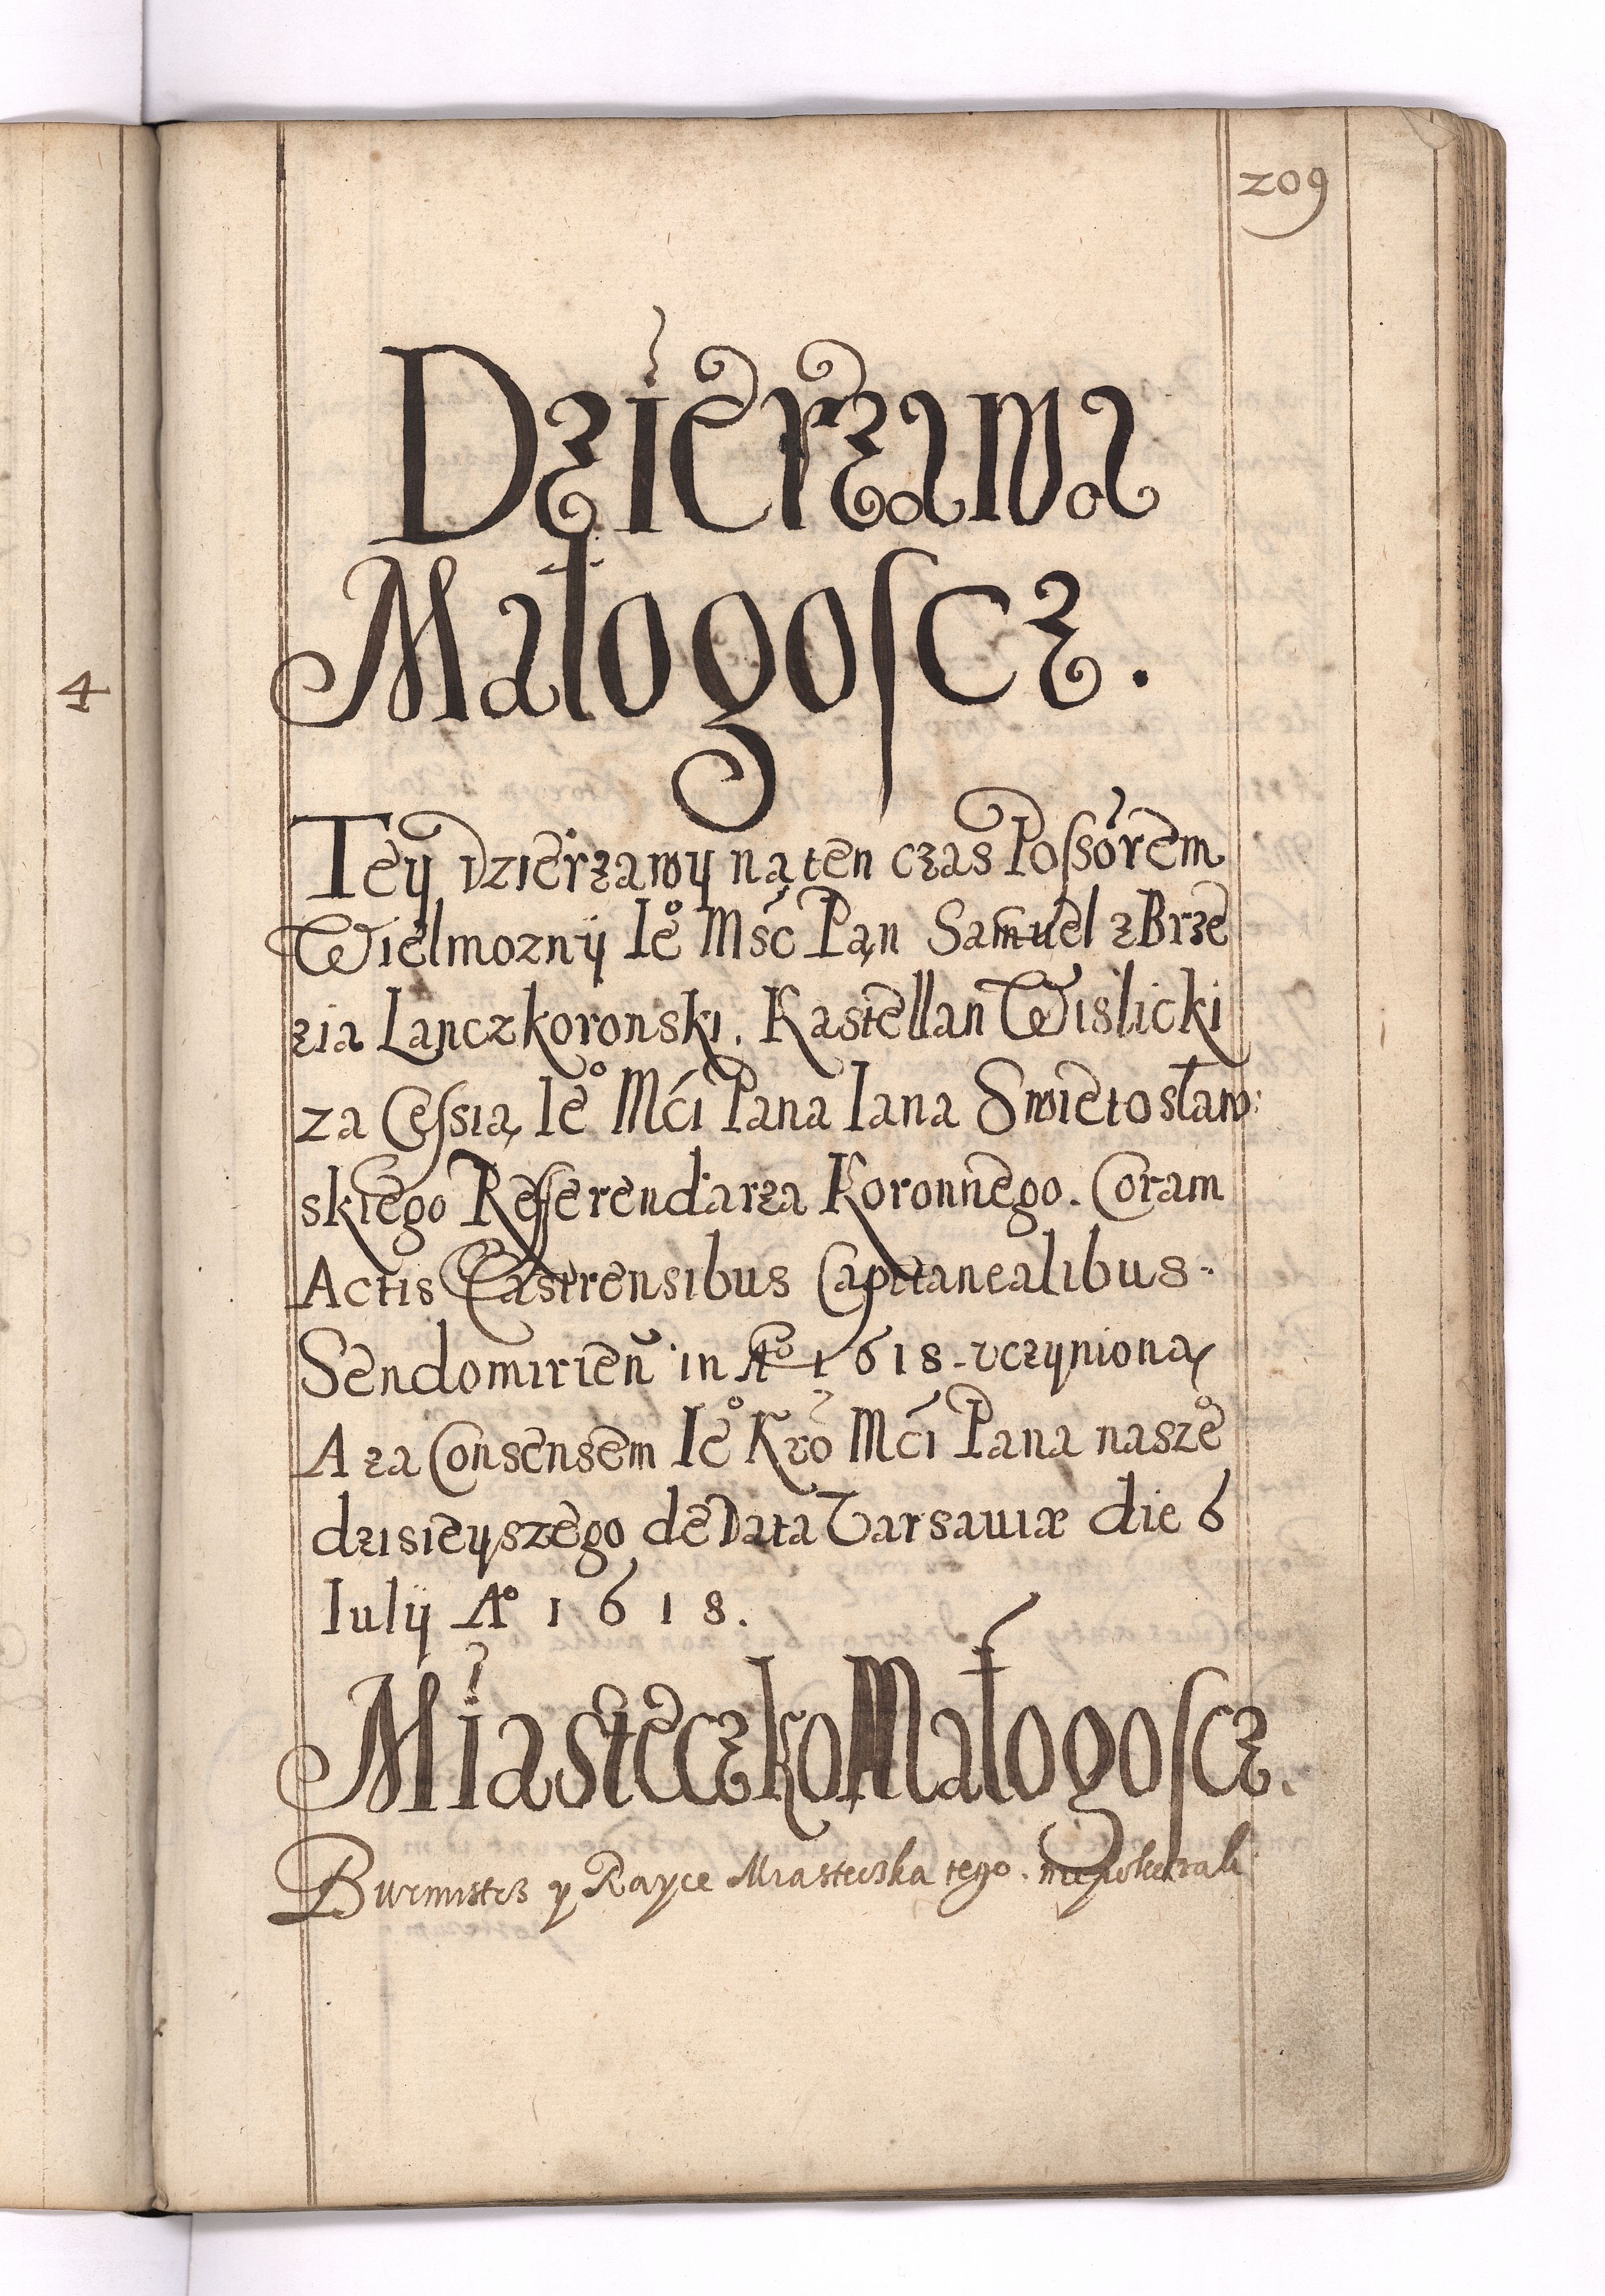 209
4
Dzierzawa
Małogoscz.
Teÿ Dzierzawÿ na ten czas Possorem
Wielmoznÿ Ie° Mść Pan Samuel z Brze
zia Lanczkoronski. Kastellan Wislicki
za Cessią Ie° Mći Pana Iana Swietosław:
skiego Referendarza Koronnego. Coram
Actis Castrensibus Capitanealibus
Sendomirien̄ in A° 1618 vczÿnioną
A za Consensem Ie° Kro Mći Pana nasze°
dzisieÿszego de Data Varsauiæ die 6
Iulÿ A° 1618.
Miasteczko Małogoscz.
Burmistrz y Rayce Miasteczka tego. niepokazali